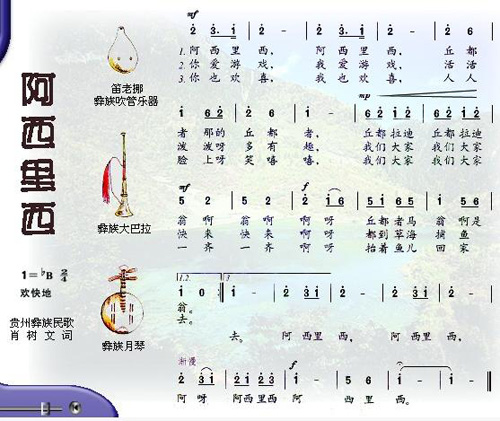 阿西里西
笛老挪
彝族吹管乐器
彝族大巴拉
彝族月琴
1=♭B 2/4
欢快地
贵州彝族民歌
肖树文 词
mf
2 3·1 2 - 2 3·1 2 - 2 6
1.阿西里西, 阿西里西, 丘都
2.你爱游戏, 我爱游戏, 活活
3.你也欢喜, 我也欢喜, 人人
mp
1 62 2 1 2 1 61 62 61 62
者那的丘都者, 丘都拉迪 丘都拉迪
泼泼呀多有趣, 我们大家 我们大家
脸上呀笑嘻嘻, 我们大家 我们大家
mf f
5 2 5 2 2 16 51 61 65 5
翁啊 翁啊 啊呀 丘都者马 翁啊是
快来 快来 啊呀 都到草海 捕鱼
一齐 一齐 啊呀 抬着鱼儿 回家
1.2. 3
1 0 1 - 2 31 2 - 2 31 2 -
翁。
去。
去。 阿西里西, 阿西里西,
渐慢 f
2 31 2 31 2 1 - 5 6 1 - 1 -
阿呀 阿西里西 阿 西里西。